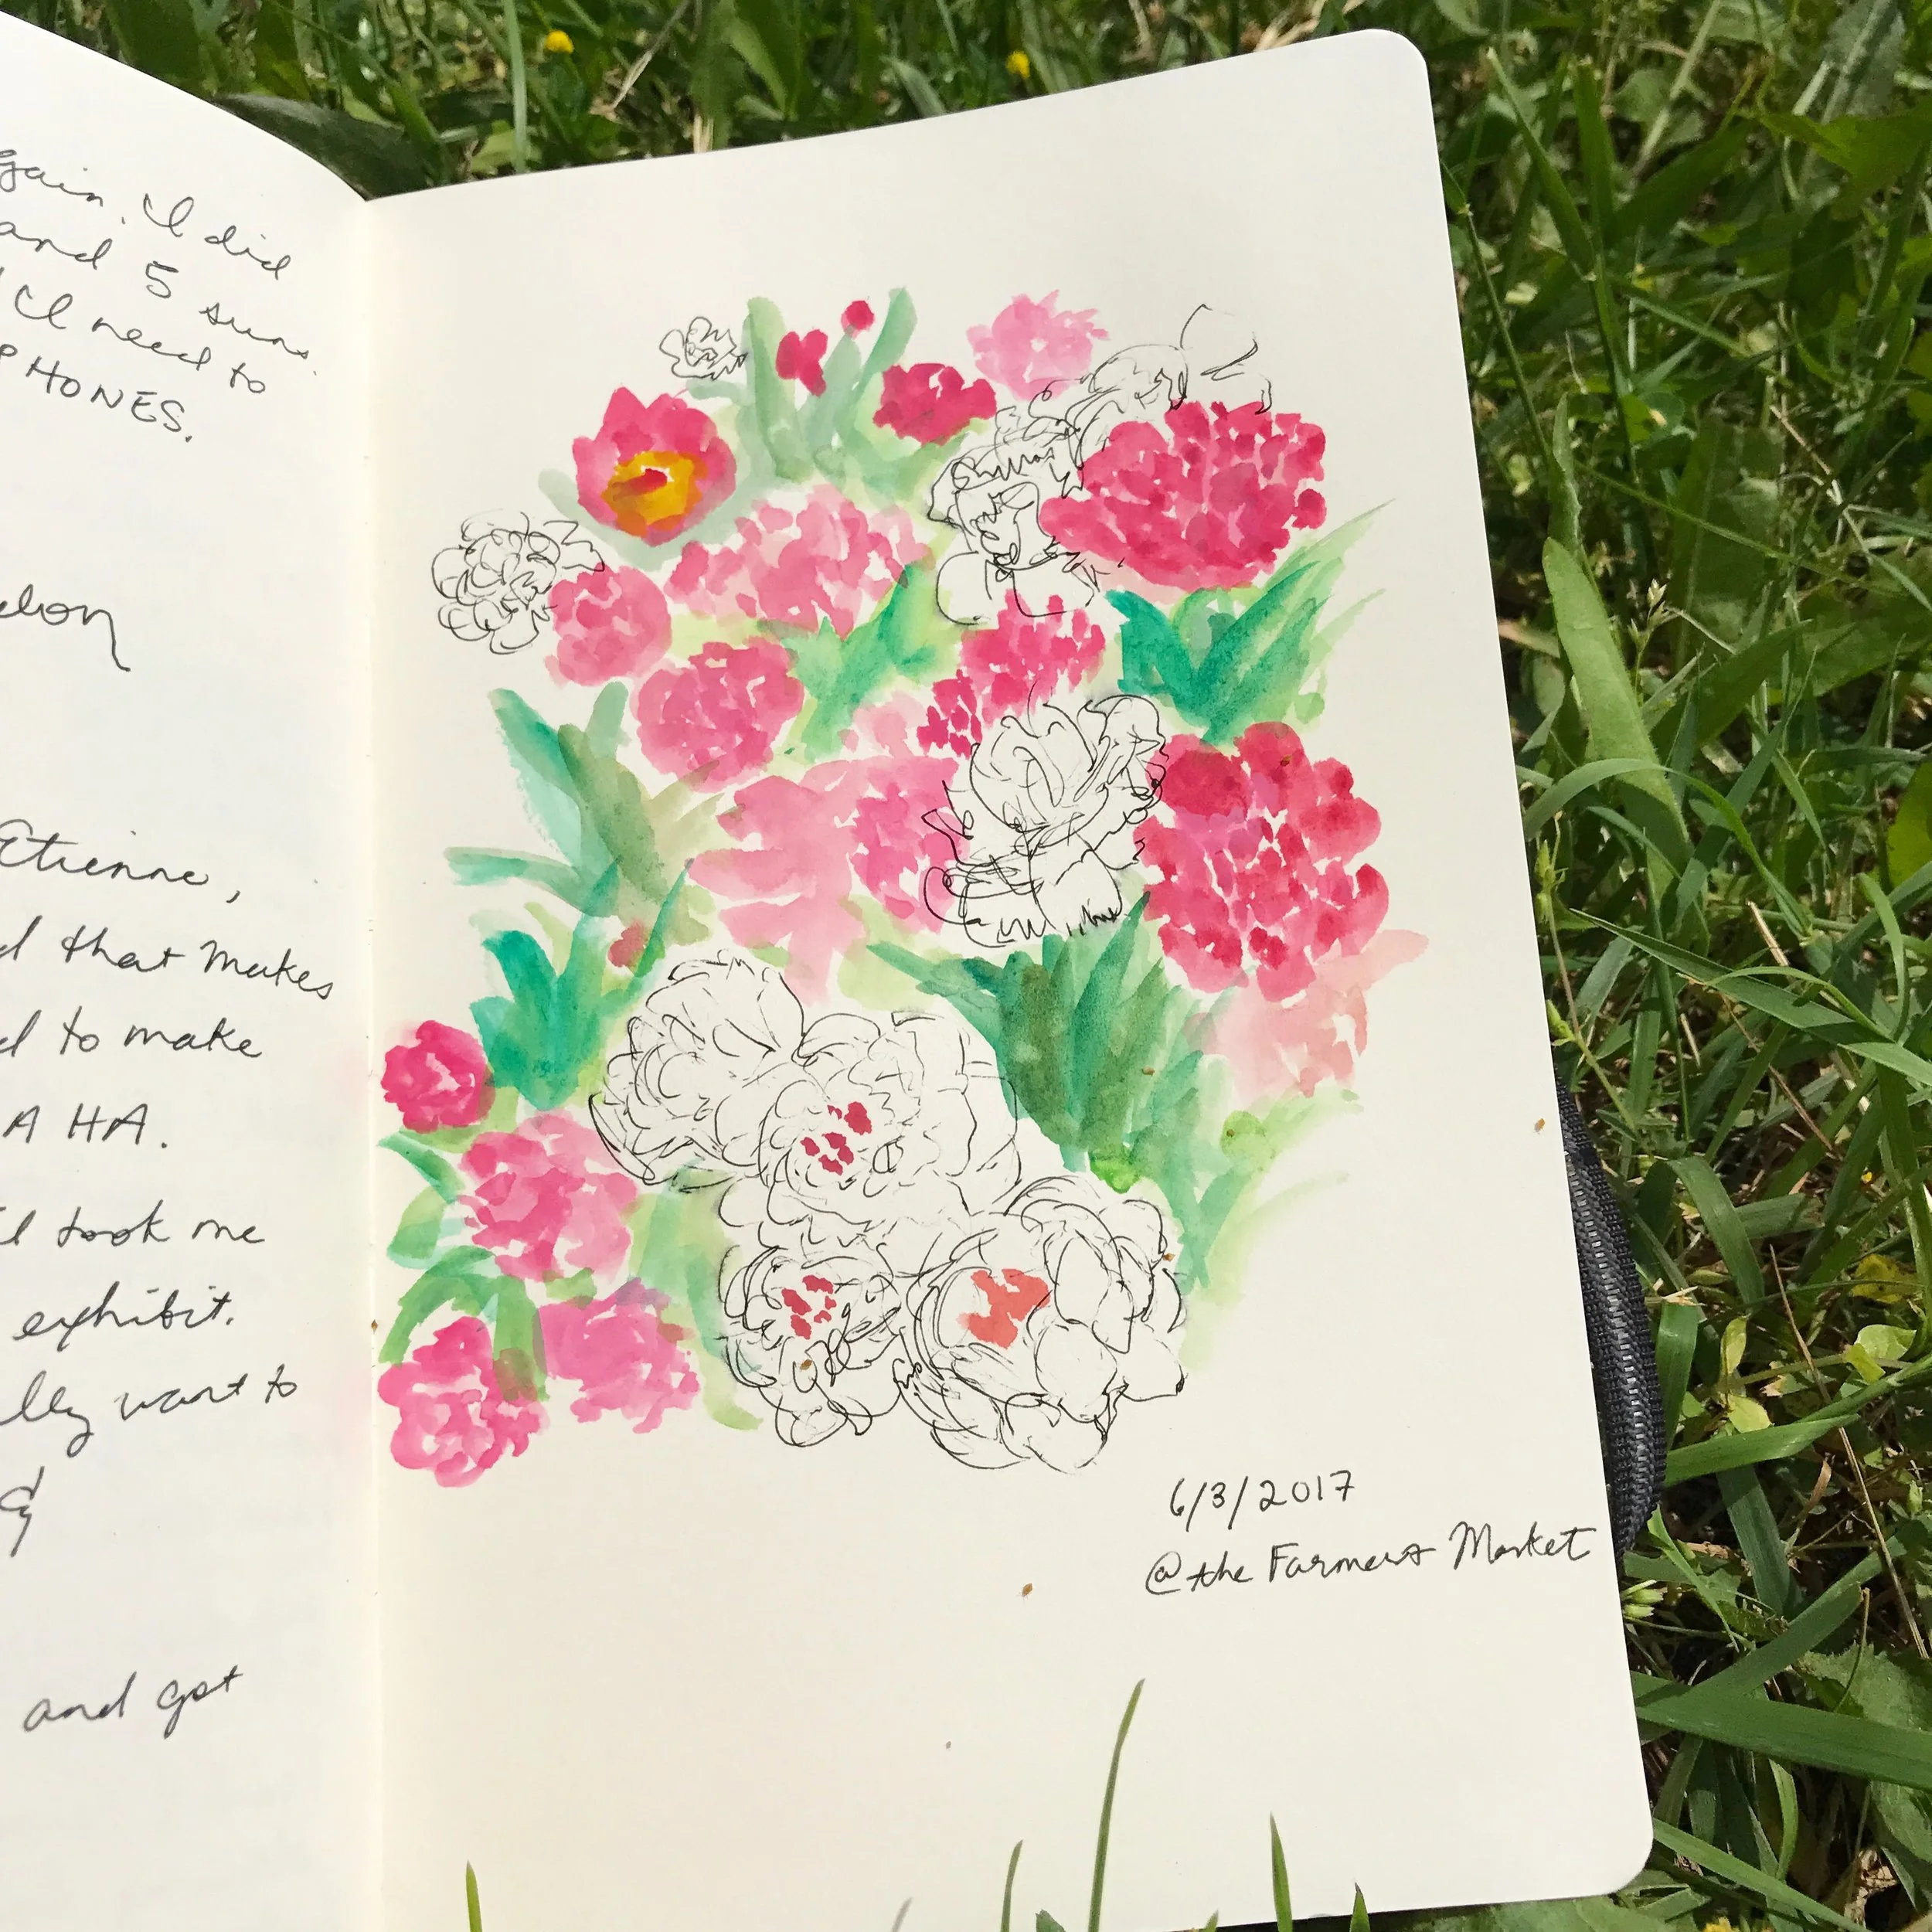 gain. I did
and 5 suns.
I need to
PHONES.
Etienne,
that makes
to make
A HA.
took me
exhibit.
want to
and got
6/3/2017
@the Farmers Market